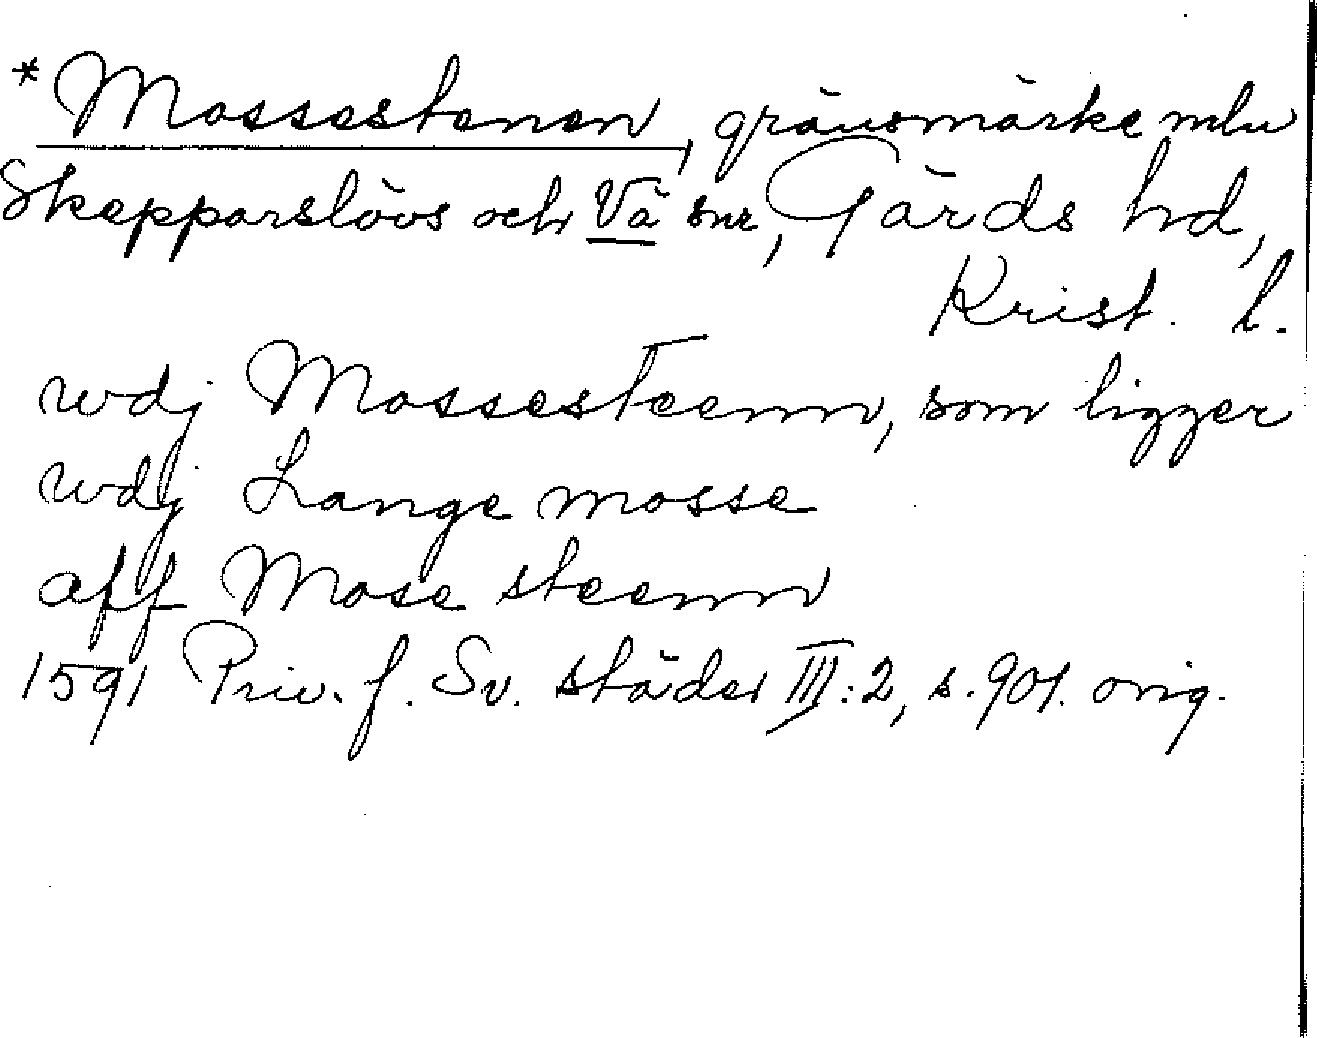 *Mossestenen, gränsmärke mln
Skepparslövs och Vä snr, Gärds hd,
Krist. l.
wdj Mossesteenn, som ligger
wdj Lange mosse
aff Mose steenn
1591 Priv. f. Sv. städer III:2, s. 901. orig.